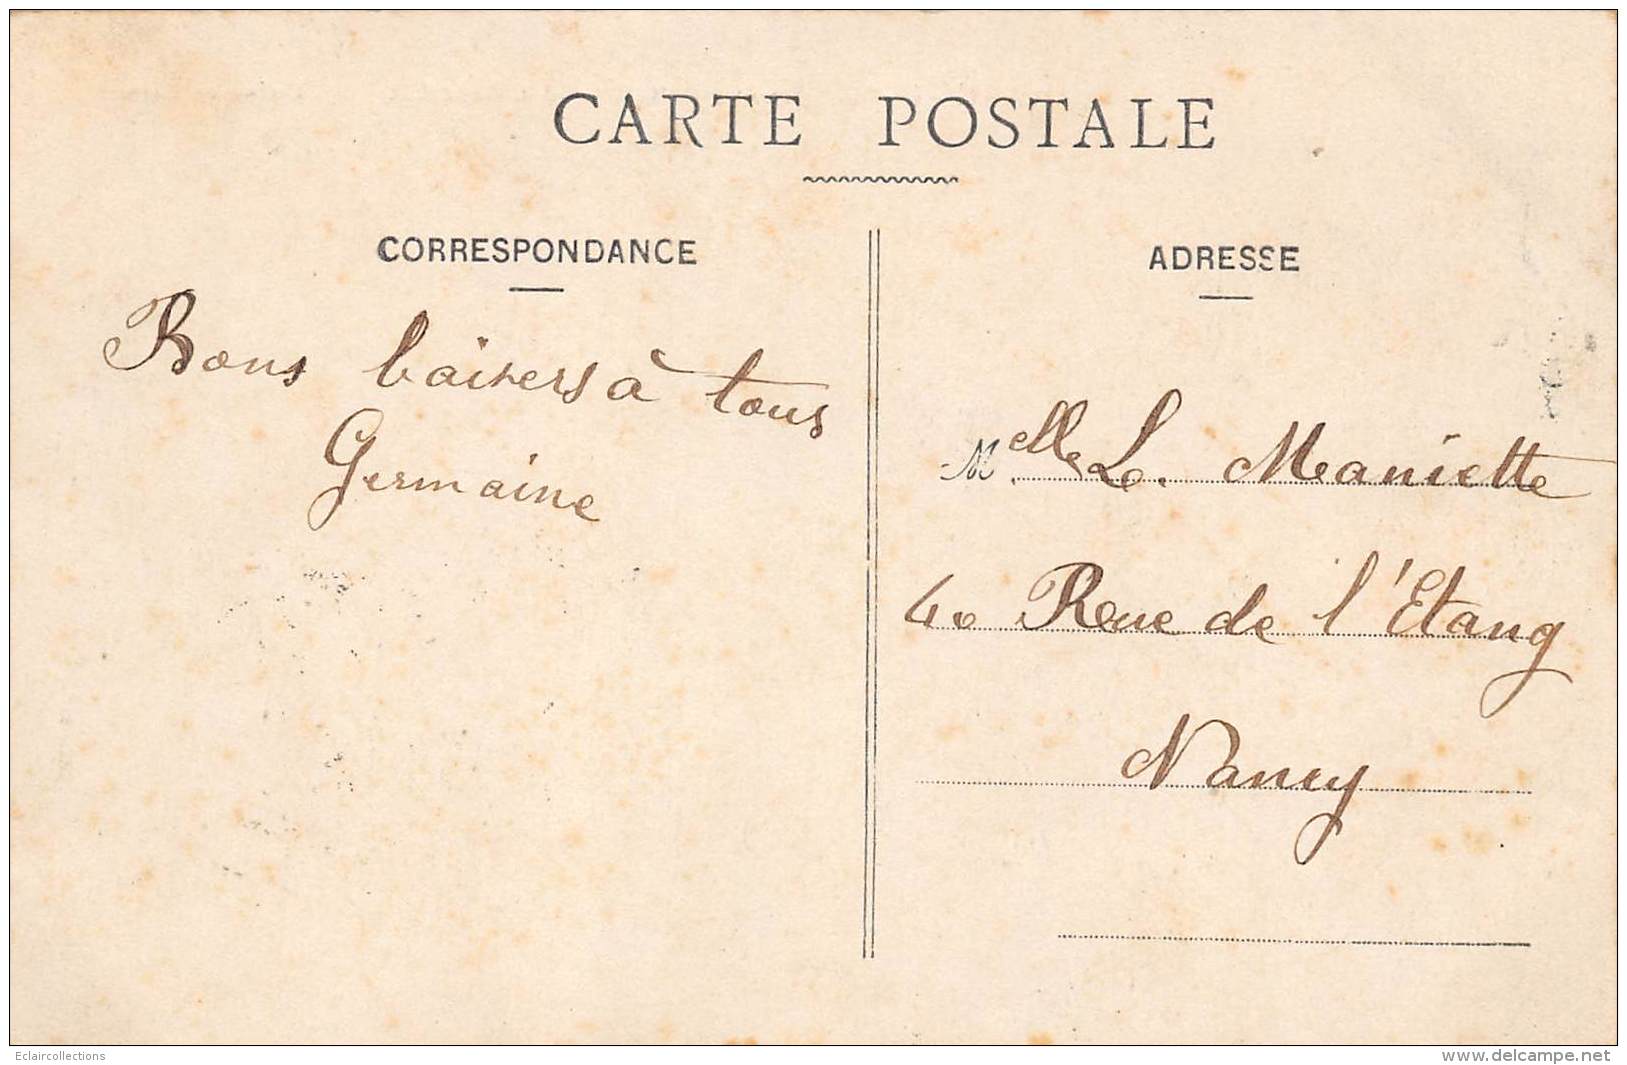 CARTE POSTALE
CORRESPONDANCE
Bons baisers à tous
Germaine
ADRESSE
Melle. L. Maniette
40 Rue de l'Etang
Nancy
Eclaircollections
www.delcampe.net